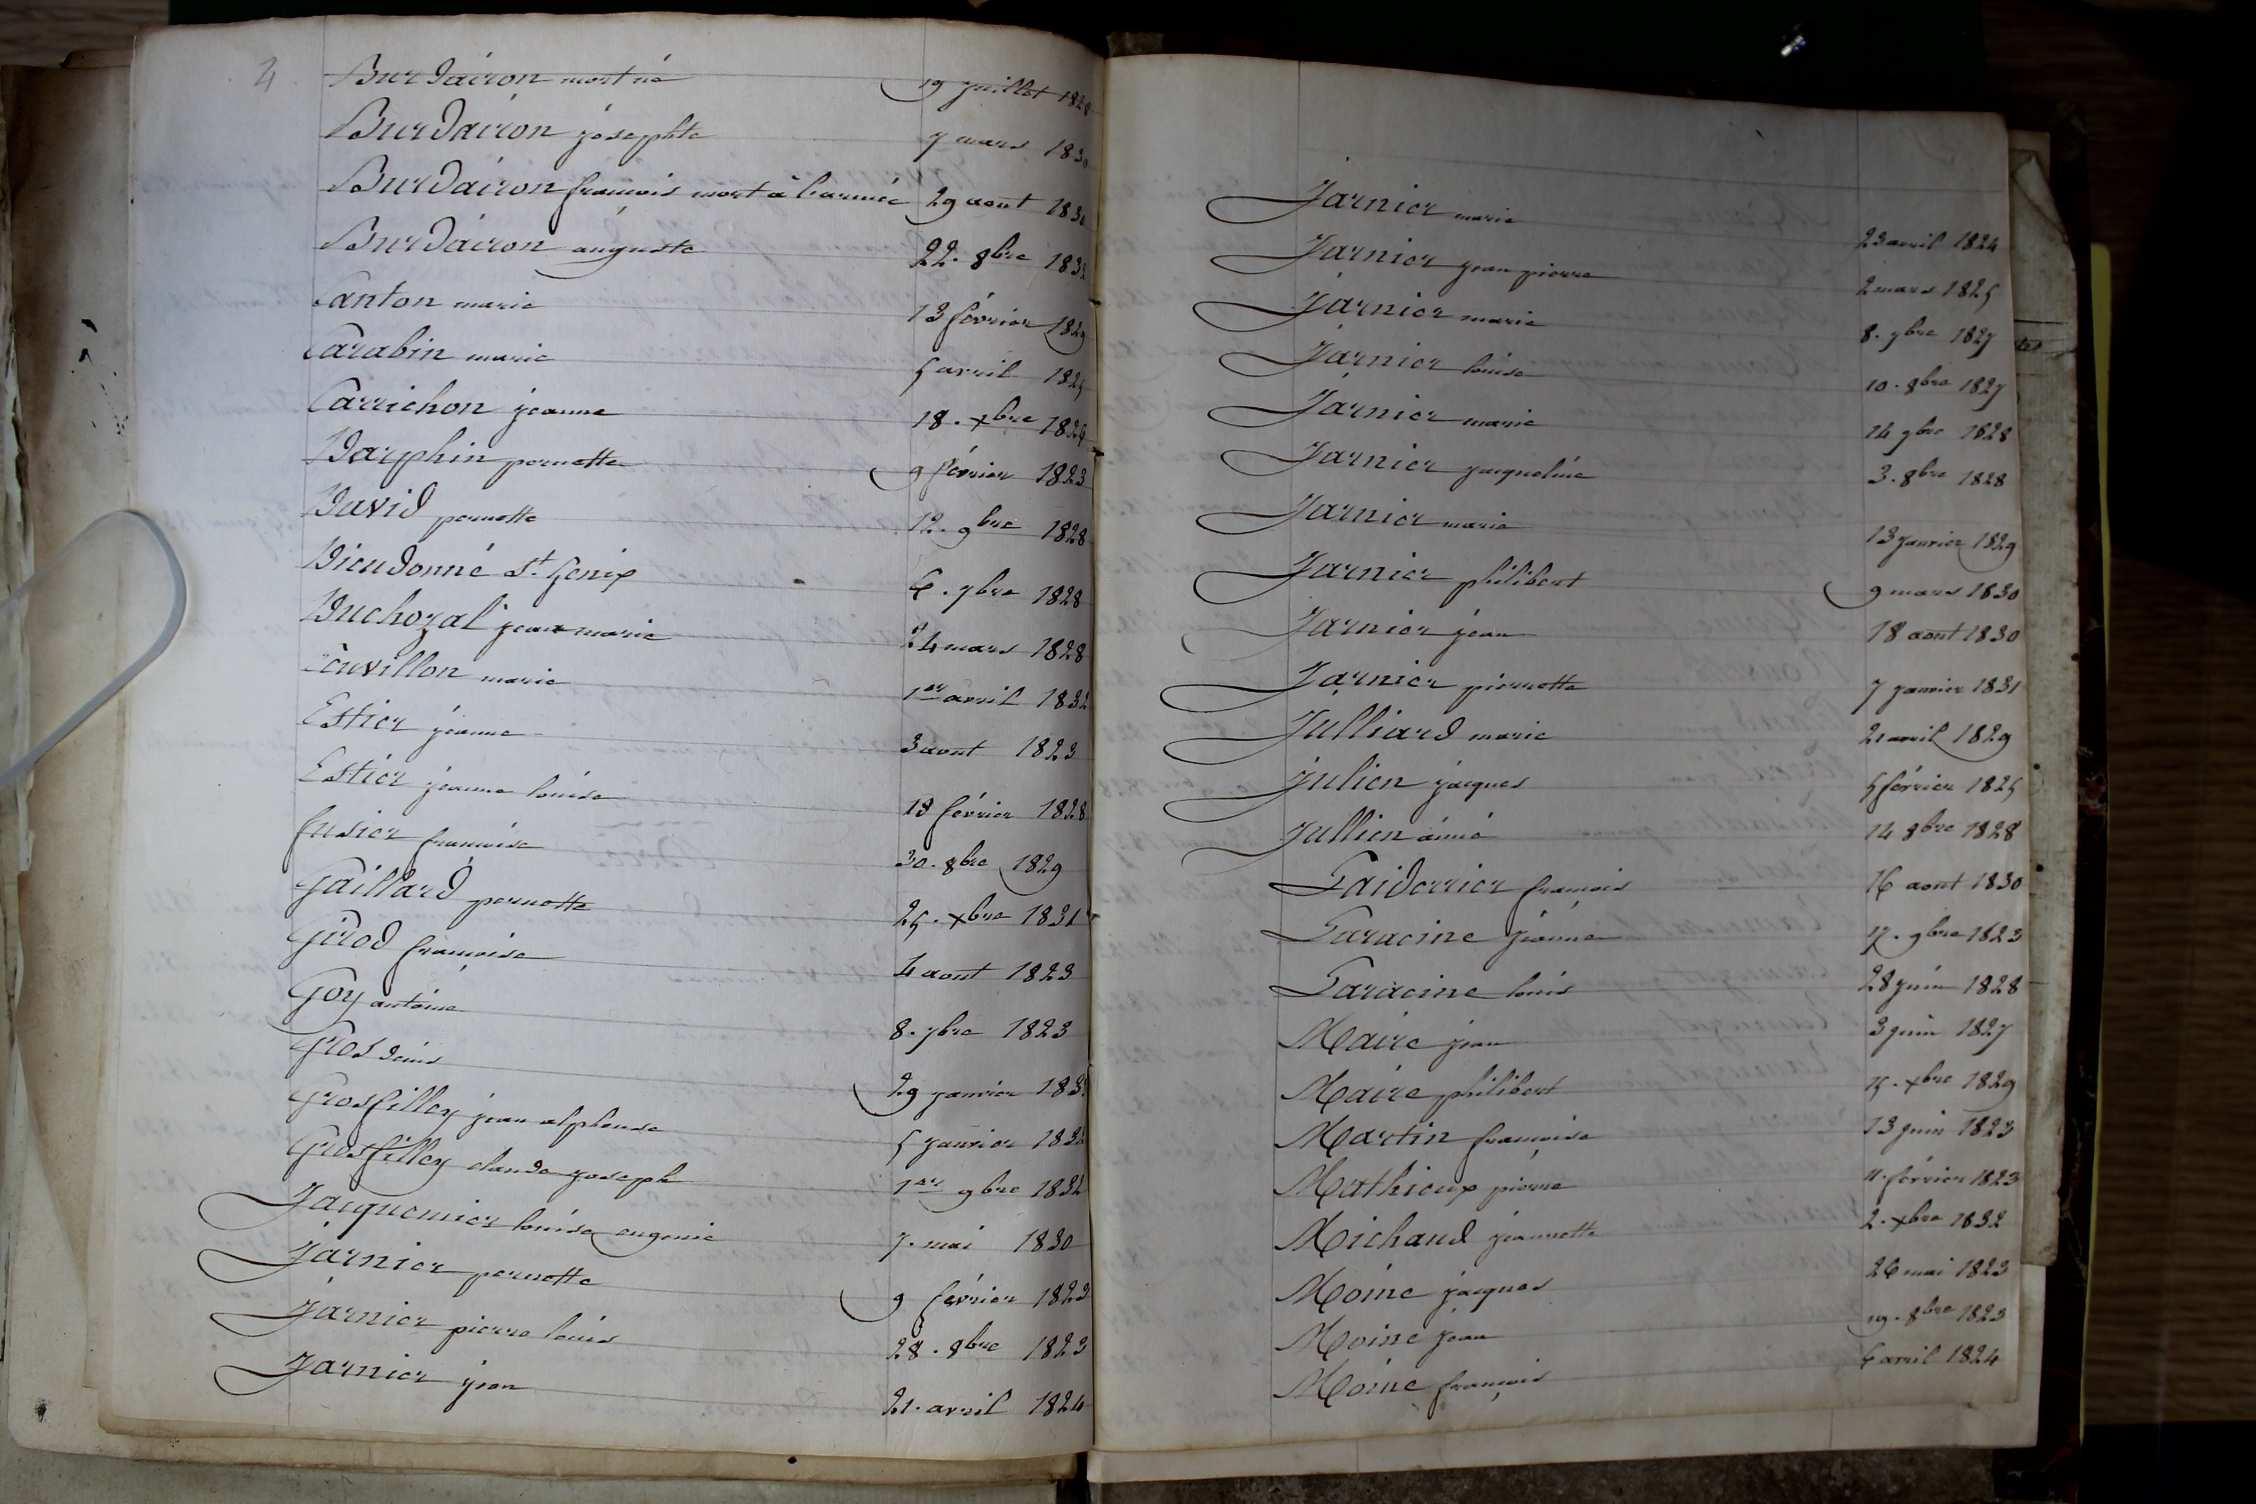 4
Burdairon mort né 19 juillet 1828
Burdairon josephte 7 mars 1830
Burdairon francois mort à l'armée 29 aout 1830
Burdairon auguste 22. 8bre 1832
Canton marie 13 février 1829
Carabin marie 5 avril 1825
Carrichon jeanne 18. xbre 1824
Darphin pernette 9 février 1823
David pernette 12. 9bre 1828
Dieudonné St. Genix 6. 7bre 1828
Duchozal jean marie 24 mars 1828
Écuvillon marie 1er avril 1832
Estier jeanne 3 aout 1823
Estier jeanne louise 18 février 1828
fusier francoise 30. 8bre 1829
Gaillard pernette 25. xbre 1831
Girod francoise 4 aout 1823
Goy antoine 8. 7bre 1823
Gros denis 29 janvier 183
Grosfilley jean alphonse 5 janvier 1832
Grosfilley claude joseph 1er 9bre 1832
Jacquemier louise eugenie 7. mai 1830
Jarnier pernette 9 février 1823
Jarnier pierre louis 28. 8bre 1823
Jarnier jean 21. avril 1824
Jarnier marie 23 avril 1824
Jarnier jean pierre 2 mars 1825
Jarnier marie 8. 7bre 1827
Jarnier louise 10. 8bre 1827
Jarnier marie 14 7bre 1828
Jarnier jacqueline 3. 8bre 1828
Jarnier marie 13 janvier 1829
Jarnier philibert 9 mars 1830
Jarnier jean 18 aout 1830
Jarnier pierrette 7 janvier 1831
Julliard marie 21 avril 1829
Julien jacques 5 février 1825
Jullien aimé 14 8bre 1828
Laiderrier francois 16 aout 1830
Laracine jeanne 17. 9bre 1823
Laracine louis 28 juin 1828
Maire jean 3 juin 1827
Maire philibert 15. xbre 1829
Martin francoise 13 juin 1823
Mathieux pierre 11. février 1823
Michaud jeannette 2. xbre 1832
Moine jacques 26 mai 1823
Moine jean 19. 8bre 1823
Moine francois 6 avril 1824